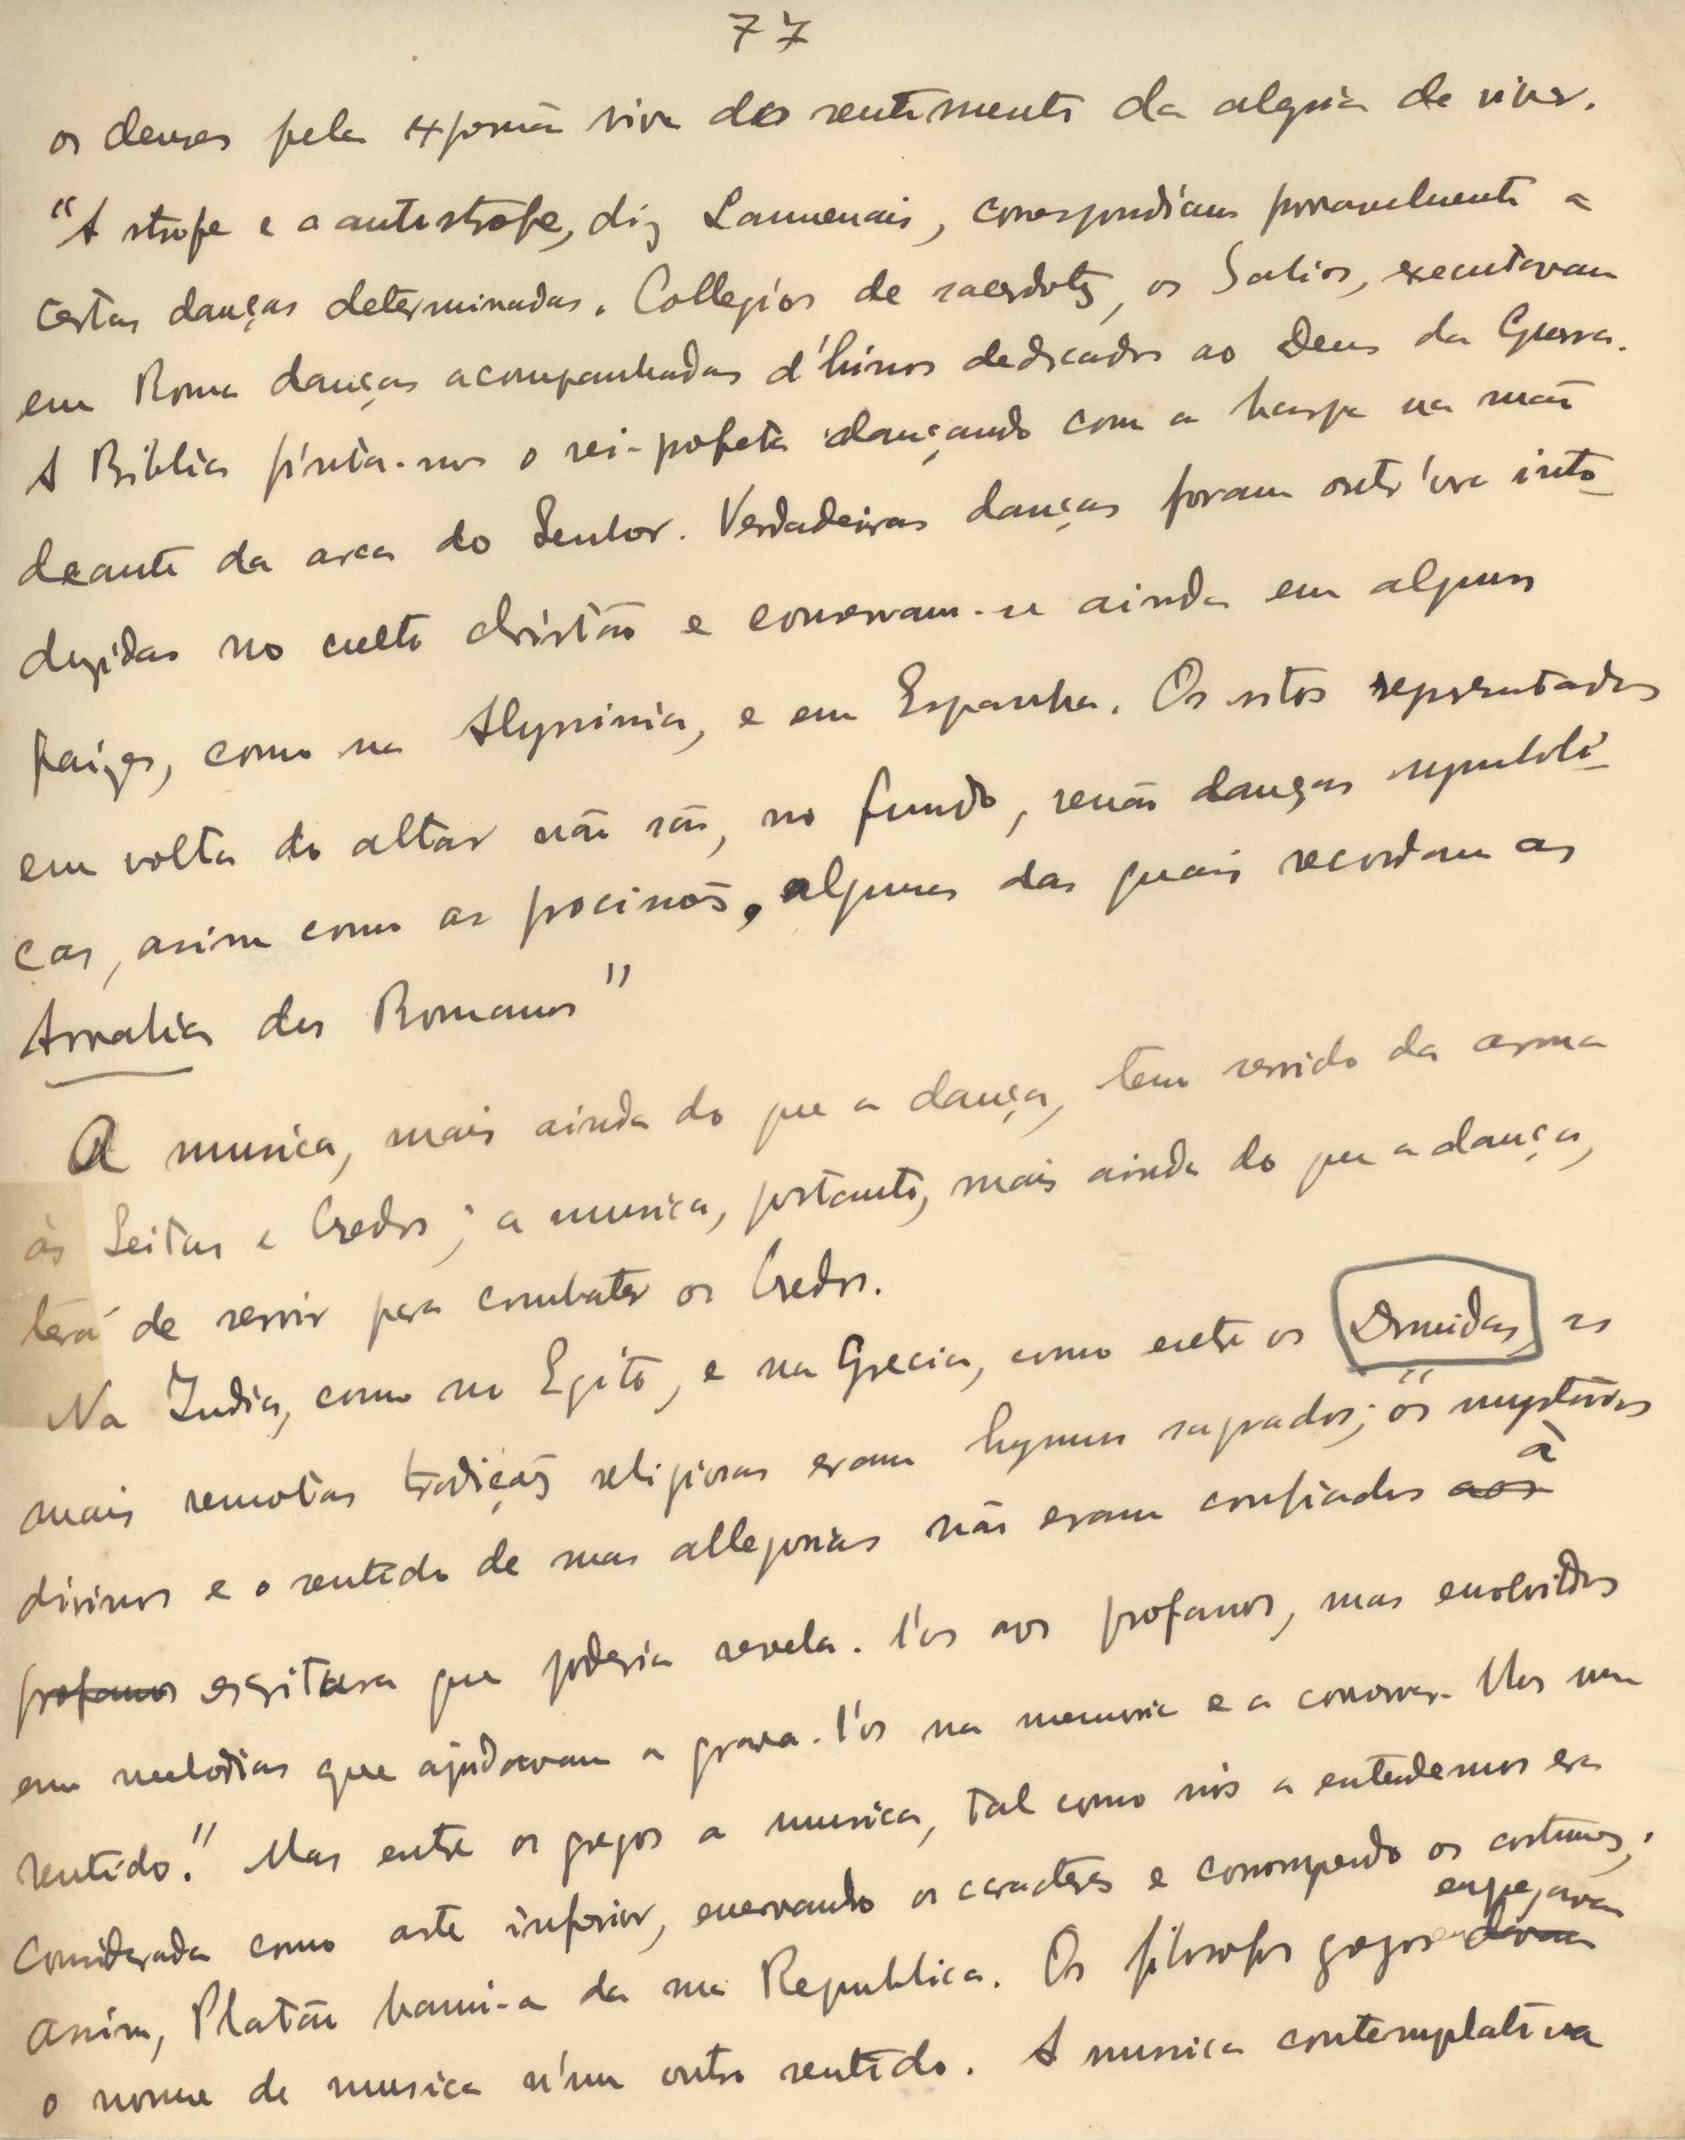 77
os deuses pela expressão viva do sentimento da alegria de viver.
"A strofe e a antistrofe, diz Lamenais, correspondiam provavelmente a
certas danças determinadas. Collegios de sacerdotes, os Salios, executavam
em Roma danças acompanhadas d'hinos dedicados ao Deus da Guerra.
A Biblia pinta-nos o rei-profeta dançando com a harpa na mão
deante da arca do Senhor. Verdadeiras danças foram outr'ora into-
duzidas no culto christão e conservam-se ainda em alguns
paizes, como na Abyssinia, e em Espanha. Os ritos representados
em volta do altar não são, no fundo, senão danças symboli-
cas, assim como as procissões, algumas das quais recordam as
Arvalias dos Romanos"
A musica, mais ainda do que a dança, tem servido da arma
ás Seitas e Credos; a musica, portanto, mais ainda do que a dança,
terá de servir para combater os Credos.
Na India, como no Egito, e na Grecia, como entre os Druidas, as
mais remotas tradições religiosas eram hymnos sagrados; "os mysterios
divinos e o sentido de suas allegorias não eram confiados aos à
profanos escritura que poderia revela-l'os aos profanos, mas envolvidos
em melodias que ajudavam a grava-l'os na memoria e a conservar-lhes um
sentido." Mas entre os gregos a musica, tal como nós a entendemos era
considerada como arte inferior, enervando os caracteres e corrompendo os costumes;
assim, Platão bani-a da sua Republica. Os filosofos gregos davam empregavam
o nome de musica n'um outro sentido. A musica contemplativa